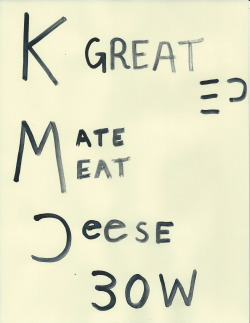 K GREAT
ΞƆ
M ATE
EAT
ƆeesE
30W